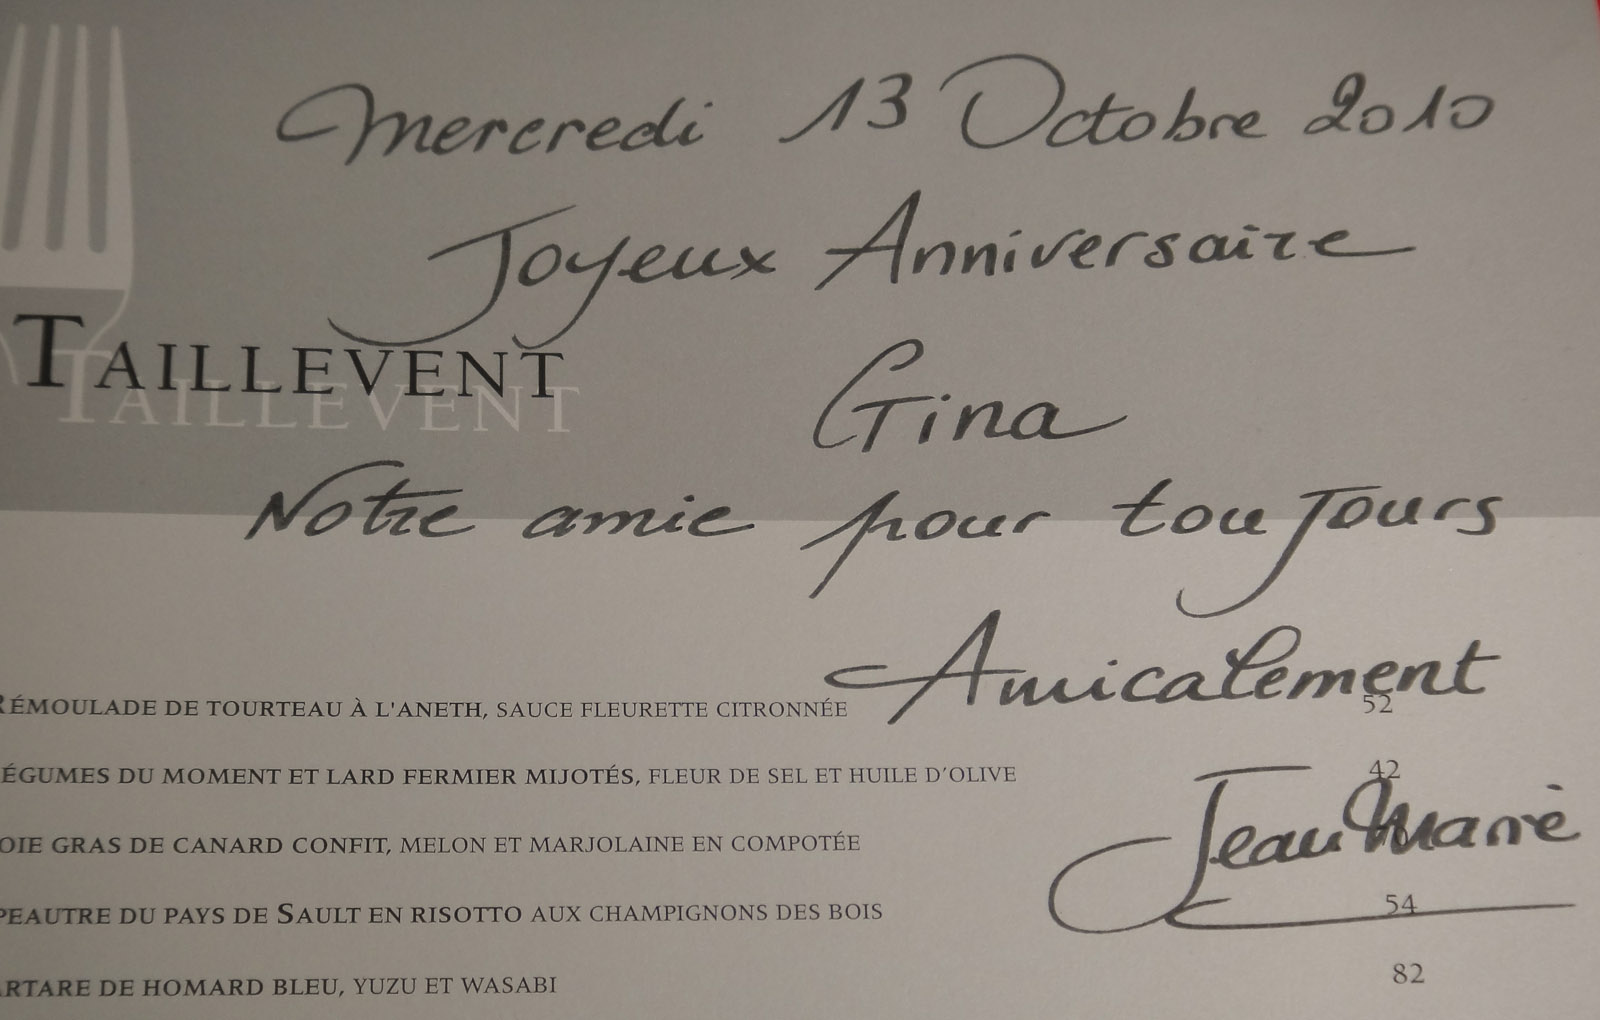 Mercredi 13 Octobre 2010
Joyeux Anniversaire
TAILLEVENT
TAILLEVENT
Gina
Notre amie pour toujours
Amicalement
RÉMOULADE DE TOURTEAU À L'ANETH, SAUCE FLEURETTE CITRONNÉE 52
ÉGUMES DU MOMENT ET LARD FERMIER MIJOTÉS, FLEUR DE SEL ET HUILE D'OLIVE 42
Jean Marie
OIE GRAS DE CANARD CONFIT, MELON ET MARJOLAINE EN COMPOTÉE
PEAUTRE DU PAYS DE SAULT EN RISOTTO AUX CHAMPIGNONS DES BOIS 54
ARTARE DE HOMARD BLEU, YUZU ET WASABI 82